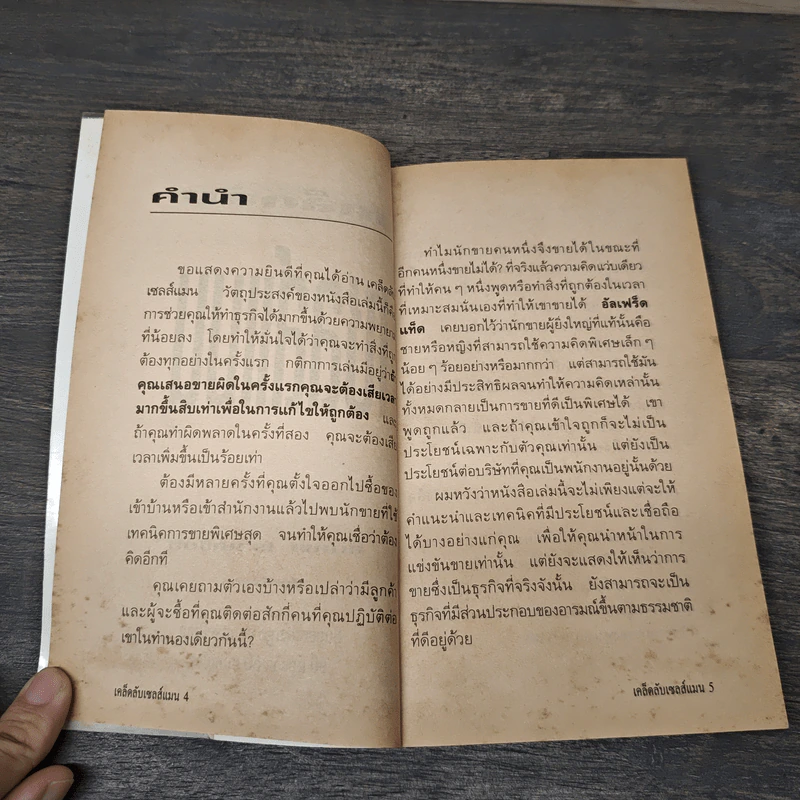 คำนำ
ขอแสดงความยินดีที่คุณได้อ่าน เคล็ดลับ
เซลส์แมน วัตถุประสงค์ของหนังสือเล่มนี้ก็คือ
การช่วยคุณให้ทำธุรกิจได้มากขึ้นด้วยความพยายาม
ที่น้อยลง โดยทำให้มั่นใจได้ว่าคุณจะทำสิ่งที่ถูก
ต้องทุกอย่างในครั้งแรก กติกาการเล่นมีอยู่ว่าถ้า
คุณเสนอขายผิดในครั้งแรกคุณจะต้องเสียเวลา
มากขึ้นสิบเท่าเพื่อในการแก้ไขให้ถูกต้อง และ
ถ้าคุณทำผิดพลาดในครั้งที่สอง คุณจะต้องเสีย
เวลาเพิ่มขึ้นเป็นร้อยเท่า
ต้องมีหลายครั้งที่คุณตั้งใจออกไปซื้อของ
เข้าบ้านหรือเข้าสำนักงานแล้วไปพบนักขายที่ใช้
เทคนิคการขายพิเศษสุด จนทำให้คุณเชื่อว่าต้อง
คิดอีกที
คุณเคยถามตัวเองบ้างหรือเปล่าว่ามีลูกค้า
และผู้จะซื้อที่คุณติดต่อสักกี่คนที่คุณปฏิบัติต่อ
เขาในทำนองเดียวกันนี้?
เคล็ดลับเซลส์แมน 4
ทำไมนักขายคนหนึ่งจึงขายได้ในขณะที่
อีกคนหนึ่งขายไม่ได้? ที่จริงแล้วความคิดแว่บเดียว
ที่ทำให้คน ๆ หนึ่งพูดหรือทำสิ่งที่ถูกต้องในเวลา
ที่เหมาะสมนั่นเองที่ทำให้เขาขายได้ อัลเฟร็ด
แท็ด เคยบอกไว้ว่านักขายผู้ยิ่งใหญ่ที่แท้นั้นคือ
ชายหรือหญิงที่สามารถใช้ความคิดพิเศษเล็ก ๆ
น้อย ๆ ร้อยอย่างหรือมากกว่า แต่สามารถใช้มัน
ได้อย่างมีประสิทธิผลจนทำให้ความคิดเหล่านั้น
ทั้งหมดกลายเป็นการขายที่ดีเป็นพิเศษได้ เขา
พูดถูกแล้ว และถ้าคุณเข้าใจถูกก็จะไม่เป็น
ประโยชน์เฉพาะกับตัวคุณเท่านั้น แต่ยังเป็น
ประโยชน์ต่อบริษัทที่คุณเป็นพนักงานอยู่นั้นด้วย
ผมหวังว่าหนังสือเล่มนี้จะไม่เพียงแต่จะให้
คำแนะนำและเทคนิคที่มีประโยชน์และเชื่อถือ
ได้บางอย่างแก่คุณ เพื่อให้คุณนำหน้าในการ
แข่งขันขายเท่านั้น แต่ยังจะแสดงให้เห็นว่าการ
ขายซึ่งเป็นธุรกิจที่จริงจังนั้น ยังสามารถจะเป็น
ธุรกิจที่มีส่วนประกอบของอารมณ์ขึ้นตามธรรมชาติ
ที่ดีอยู่ด้วย
เคล็ดลับเซลส์แมน 5